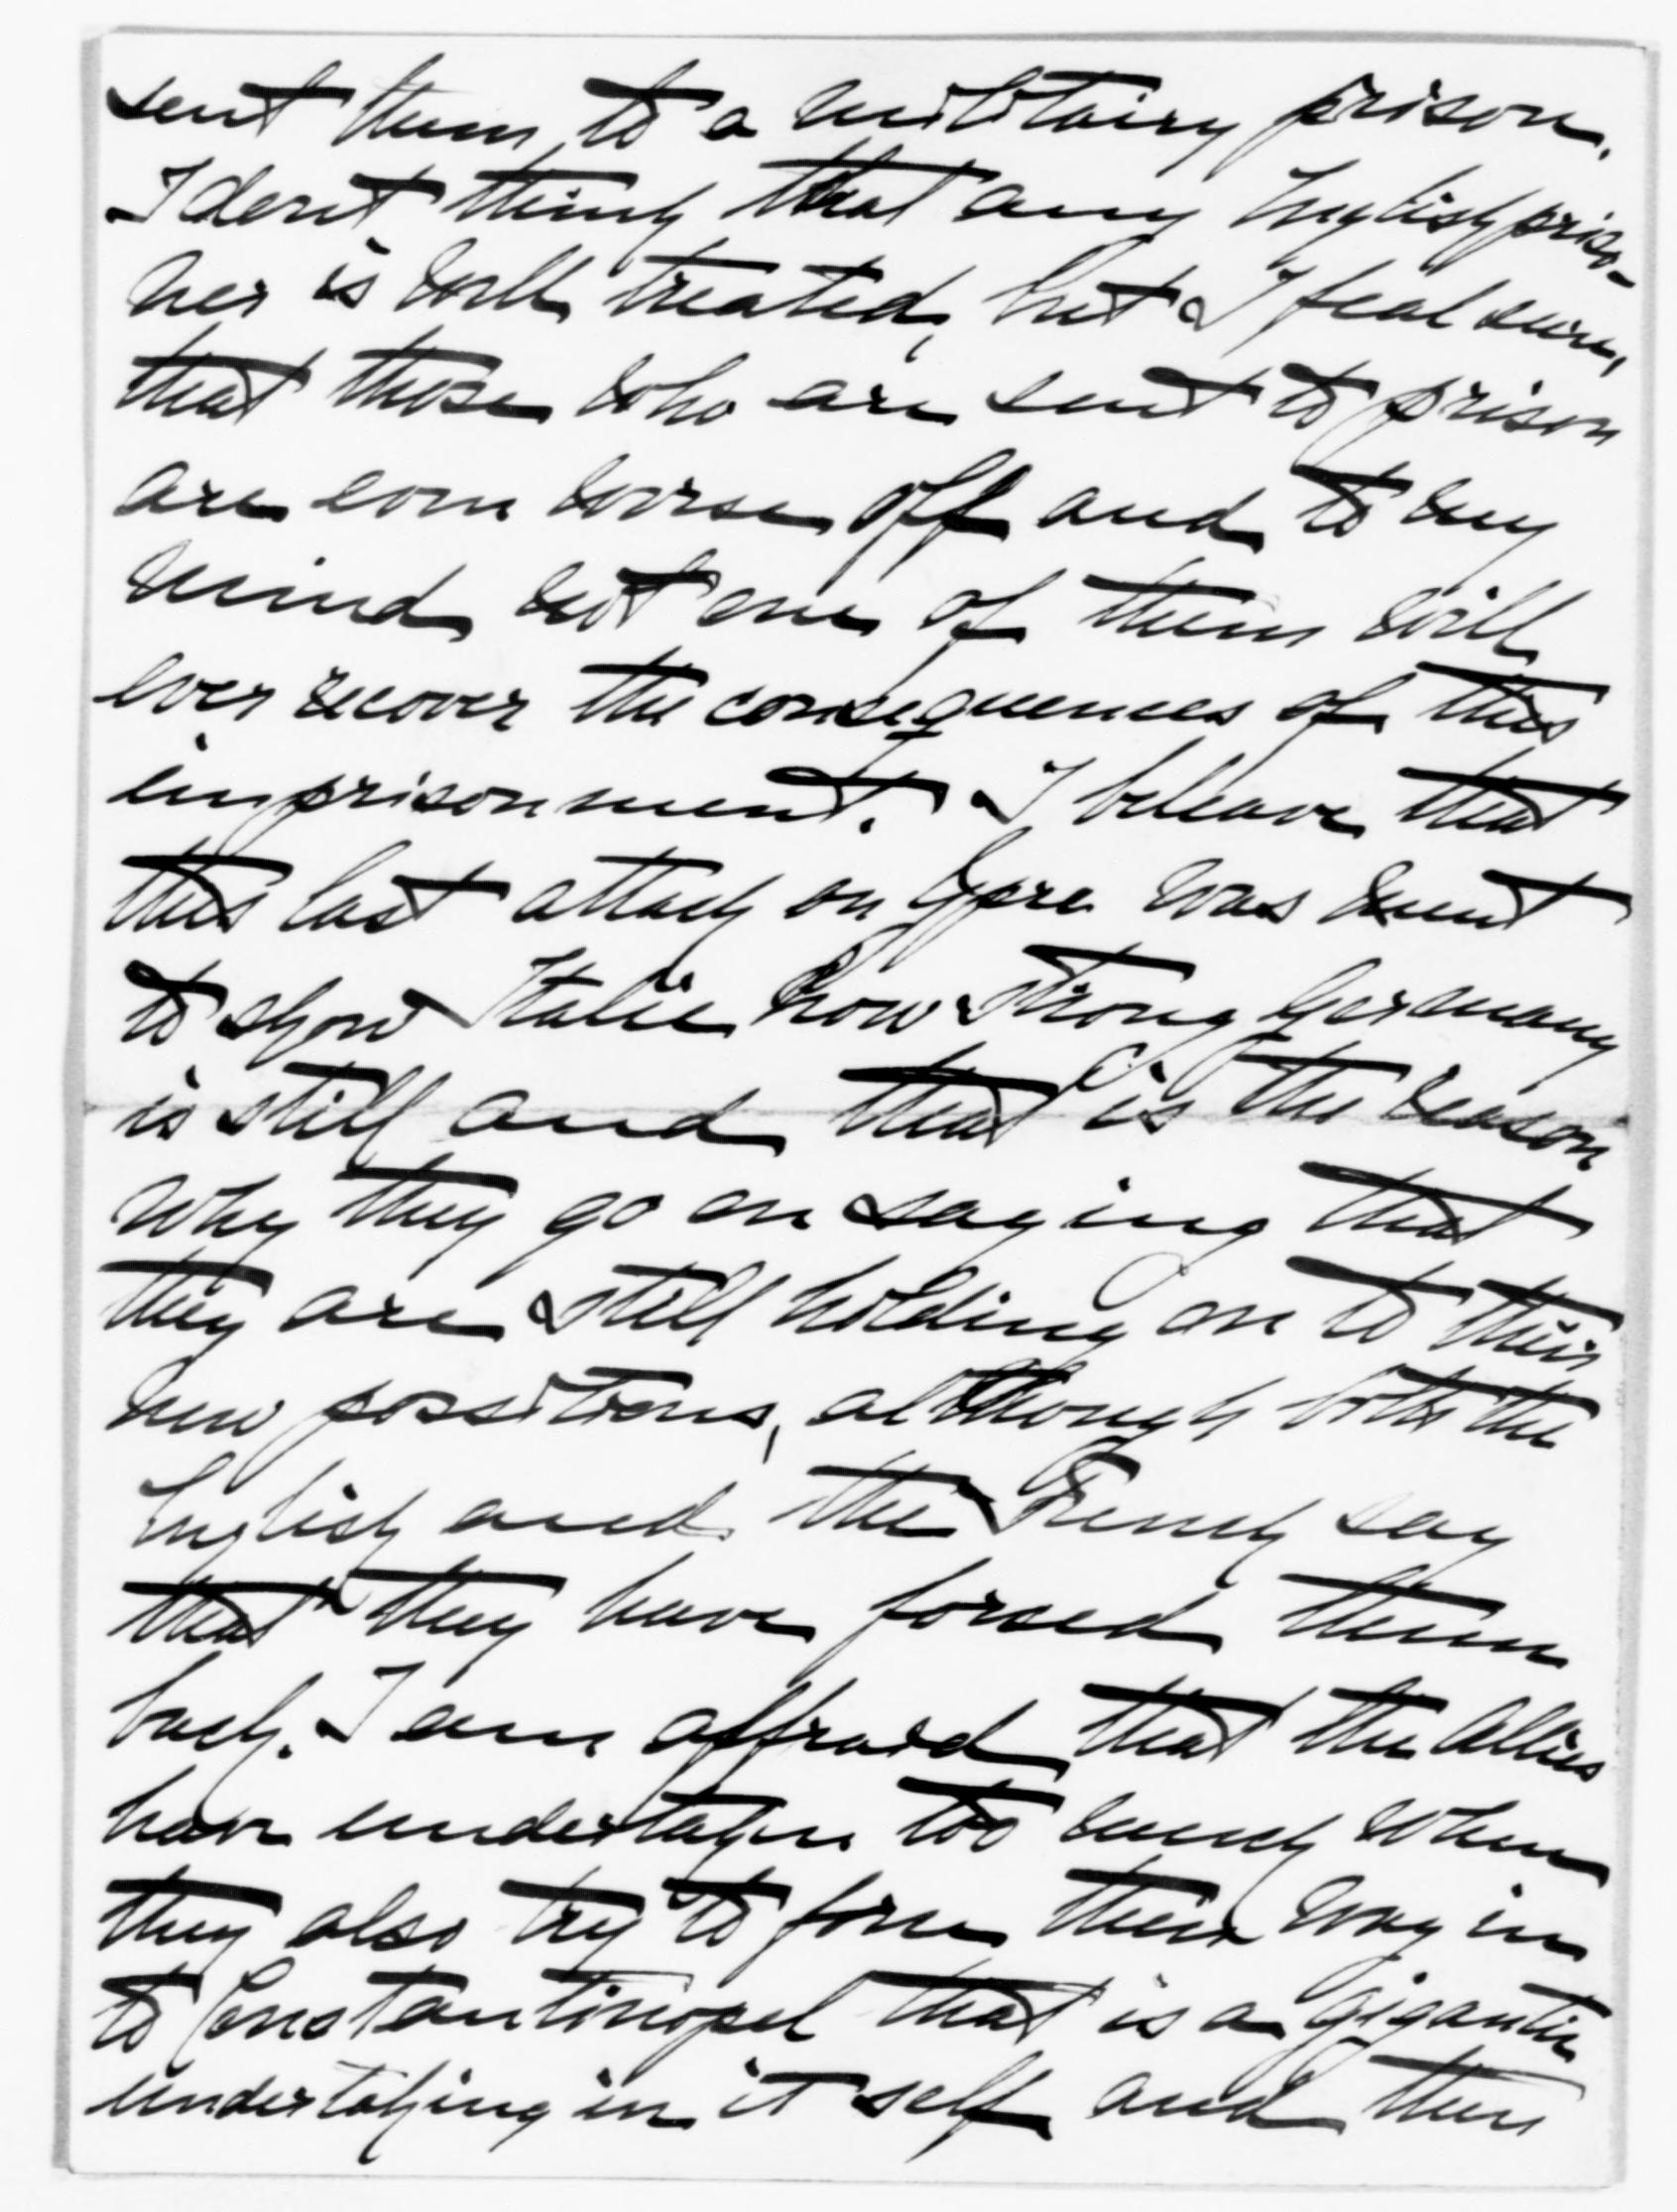 sent them to a militairy prison.
I dont think that any English priso-
ner is well treated, but I feal sure,
that those who are sent to prison
are even worse off and to my
mind not one of them will
ever recover the consequences of this
imprisonment. I beleave that
this last attack on Ypre was ment
to show Italie how strong Germany
is still and that is the reason
why they go on saying that
they are still holding on to their
new possitions, although both the
English and the French say
that they have forced them
back. I am affraid that the Allies
have undertaken too much when
they also try to force their way in
to Constantinopel that is a gigantic
undertaking in it self and then